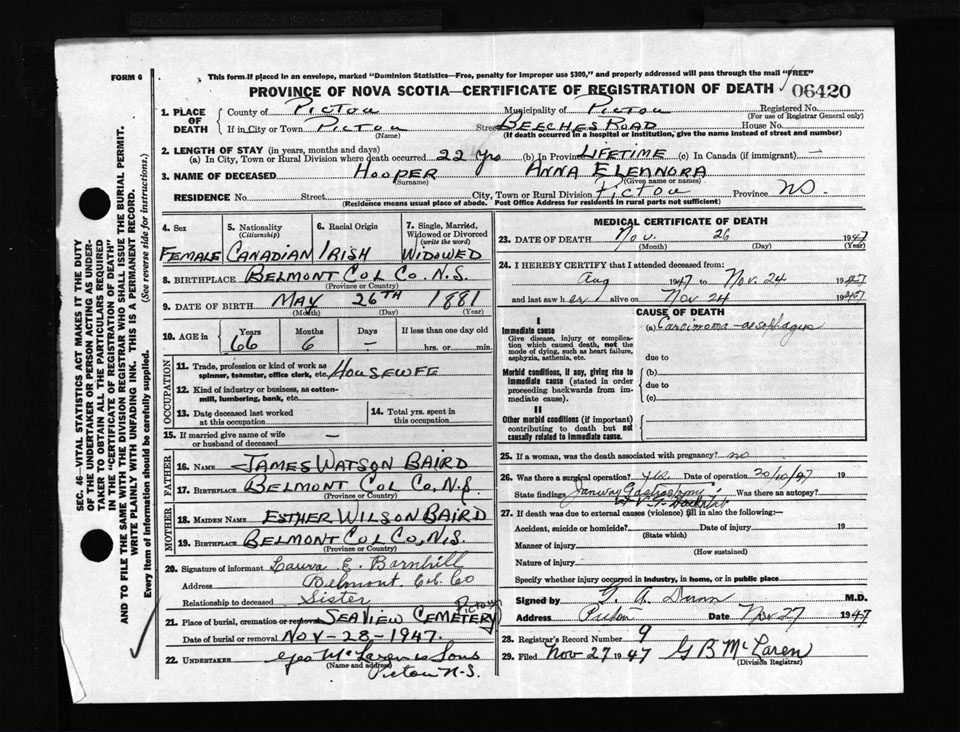 FORM 6
This form if placed in an envelope, marked "Dominion Statistics—Free, penalty for improper use $300," and properly addressed will pass through the mail "FREE"
PROVINCE OF NOVA SCOTIA—CERTIFICATE OF REGISTRATION OF DEATH 06420
1. PLACE OF DEATH
County of Pictou Municipality of Pictou Registered No.
(For use of Registrar General only)
If in City or Town Pictou Street BEECHES ROAD House No.
(Name) (If death occurred in a hospital or institution, give the name instead of street and number)
2. LENGTH OF STAY (in years, months and days)
(a) In City, Town or Rural Division where death occurred 22 yrs (b) In Province LIFETIME (c) In Canada (if immigrant) —
3. NAME OF DECEASED HOOPER ANNA ELEANORA
(Surname) (Given name or names)
RESIDENCE No. Street City, Town or Rural Division Pictou Province NS.
(Residence means usual place of abode. Post Office Address for residents in rural parts not sufficient)
4. Sex FEMALE
5. Nationality (Citizenship) CANADIAN
6. Racial Origin IRISH
7. Single, Married, Widowed or Divorced (write the word) WIDOWED
8. BIRTHPLACE BELMONT COL CO. N.S.
(Province or Country)
9. DATE OF BIRTH MAY 26TH 1881
(Month) (Day) (Year)
10. AGE in Years Months Days If less than one day old
66 6 – hrs. or min.
OCCUPATION
11. Trade, profession or kind of work as spinner, teamster, office clerk, etc. HOUSEWFE
12. Kind of industry or business, as cotton-mill, lumbering, bank, etc.
13. Date deceased last worked at this occupation
14. Total yrs. spent in this occupation
15. If married give name of wife or husband of deceased —
FATHER
16. NAME JAMES WATSON BAIRD
17. BIRTHPLACE BELMONT COL CO, N.S.
(Province or Country)
MOTHER
18. MAIDEN NAME ESTHER WILSON BAIRD
19. BIRTHPLACE BELMONT COL CO, N.S.
(Province or Country)
20. Signature of informant Laura E. Barnhill
Address Belmont Col. Co
Relationship to deceased Sister
21. Place of burial, cremation or removal SEAVIEW CEMETERY Pictou
Date of burial or removal NOV-28-1947.
22. UNDERTAKER Geo McLaren & Sons
(Name and address)
Pictou N-S.
MEDICAL CERTIFICATE OF DEATH
23. DATE OF DEATH Nov. 26 1947
(Month) (Day) (Year)
24. I HEREBY CERTIFY that I attended deceased from:
Aug 1947 to Nov. 24 1947
and last saw her alive on Nov 24 1947
CAUSE OF DEATH
I
Immediate cause
Give disease, injury or complication which caused death, not the mode of dying, such as heart failure, asphyxia, asthenia, etc.
(a) Carcinoma-aesophagus
due to
Morbid conditions, if any, giving rise to immediate cause (stated in order proceeding backwards from immediate cause).
(b)
due to
(c)
II
Other morbid conditions (if important) contributing to death but not causally related to immediate cause.
25. If a woman, was the death associated with pregnancy? no
26. Was there a surgical operation? yes Date of operation 20/10/47 19
State findings Gastrostomy Was there an autopsy?
27. If death was due to external causes (violence) fill in also the following:—
Accident, suicide or homicide? Date of injury 19
(State which)
Manner of injury
(How sustained)
Nature of injury
Specify whether injury occurred in industry, in home, or in public place
Signed by G. A. Dunn M.D.
Address Pictou Date Nov 27 1947
28. Registrar's Record Number 9
29. Filed Nov 27 1947 G B McLaren
(Division Registrar)
SEC. 46—VITAL STATISTICS ACT MAKES IT THE DUTY
OF THE UNDERTAKER OR PERSON ACTING AS UNDER-
TAKER TO OBTAIN ALL THE PARTICULARS REQUIRED
IN THE "CERTIFICATE OF REGISTRATION OF DEATH"
AND TO FILE THE SAME WITH THE DIVISION REGISTRAR WHO SHALL ISSUE THE BURIAL PERMIT.
WRITE PLAINLY WITH UNFADING INK. THIS IS A PERMANENT RECORD.
Every item of information should be carefully supplied. (See reverse side for instructions.)